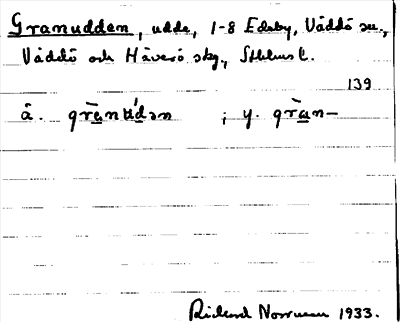 Granudden, udde, 1-8 Edeby, Väddö sn.,
Väddö och Häverö skg., Sthlms l.
139
å. grànu̇́dən ; y. gràn-
Rickard Norrman 1933.